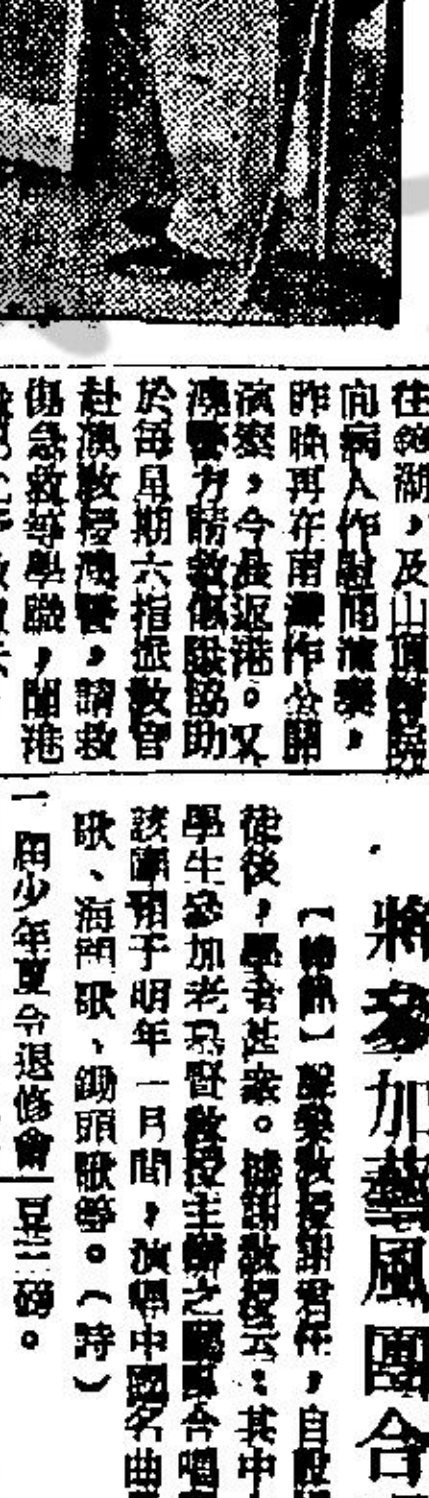 往鏡湖，及山頂醫院
向病人作慰問演奏，
昨晚再在南灣作公開
演奏，今晨返港。又
澳警方請救傷隊協助
於每星期六指派敎官
赴澳敎授澳警，講救
傷急救等學識，聞港
將參加藝風團合
【特訊】聲樂敎授
徒後，學者甚衆。據謝敎授云：其中
學生參加老昌督敎授主辦之藝風合唱
該團預于明年一月間，演唱中國名曲
歌、海門歌、鋤頭歌等。（詩）
一屆少年夏令退修會
豆三磅。